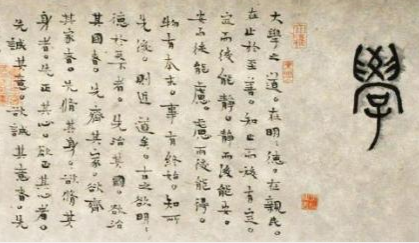 學
大學之道。在明〻德。在親民。
在止於至善。知止而後有定。
定而後能靜。靜而後能安。
安而後能慮。慮而後能得。
物有本末。事有終始。知所
先後。則近道矣。古之欲明〻
德於天下者。先治其國。欲治
其國者。先齊其家。欲齊
其家者。先脩其身。欲脩其
身者。先正其心。欲正其心者。
先誠其意。欲誠其意者。先